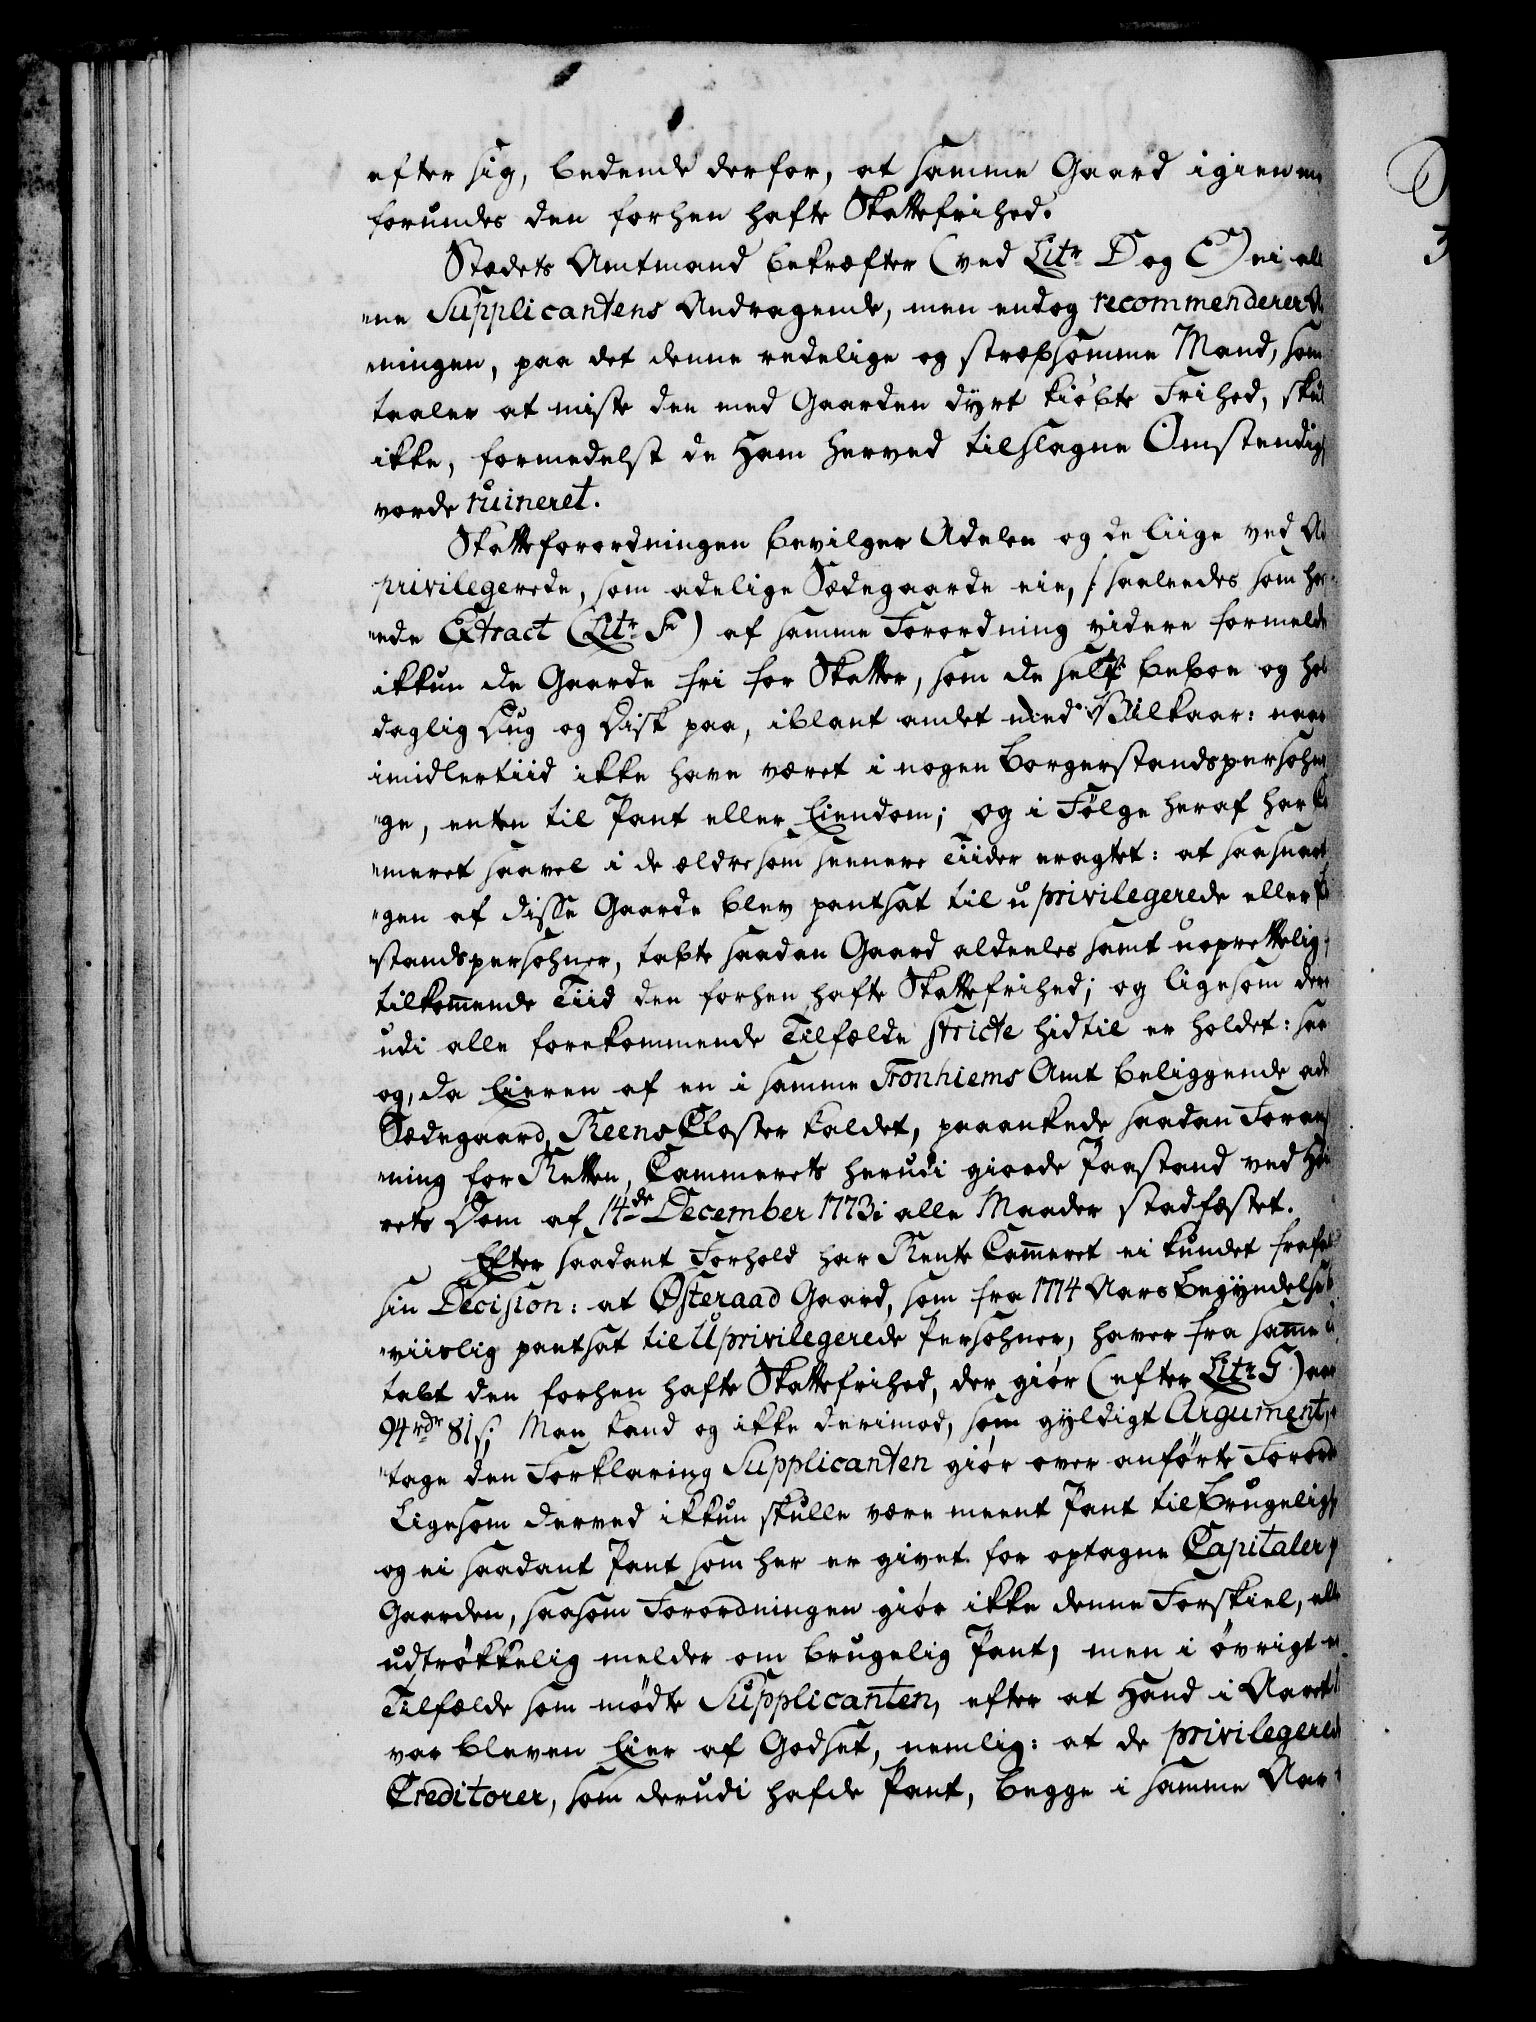 efter sig, bedende derfor, at samme Gaard igien
forundes den forhen hafte Skattefrihed.
Stædets Amtmand bekræfter (ved Litr D og E) ei al
"ene Supplicantens Andragende, men endog recommenderer
"ningen, paa det denne redelige og stræbsomme Mand, som
taaler at miste den med Gaarden dyrt kiøbte Frihed, skul
ikke, formedelst de ham herved tilslagne Omstendig
vorde ruineret.
Skatteforordningen bevilger Adelen og de liige ved
privilegerede, som adelige Sædegaarde eie, /: saaledes som hos
"ede Extract (Litr F) af samme Forordning videre formelde
ikkun de Gaarde fri for Skatter, som de selv beboe og hol
daglig Dug og Disk paa, iblant andet med Vilkaar: naar
imidlertiid ikke have været i nogen Borgerstandspersohn
"ge, enten til Pant eller Eiendom; og i Følge heraf har
"meret saavel i de ældre som seenere Tiider eragtet: at saasnart
"gen af disse Gaarde blev pantsat til uprivilegerede eller
standspersohner, tabte saadan Gaard aldeeles samt uoprettelig
tilkommende Tiid den forhen hafte Skattefrihed; og ligesom der
udi alle forekommende Tilfælde stricte hidtil er holdet: saa
og, da Eieren af en i samme Tronhiems Amt beliggende ade
Sædegaard, Reens Closter kaldet, paaankede saadan Foran
"ning for Retten, Cammerets herudi giorde Paastand ved Høi
rets Dom af 14de December 1773 i alle Maader stadfæstet.
Efter saadant Forhold har Rente Cammeret ei kundet frafal
sin Decision: at Østeraad Gaard, som fra 1774 Aars Begyndelse
"viislig pantsat til Uprivilegerede Persohner, haver fra samme
tabt den forhen hafte Skattefrihed, der giør (efter Litr G) aar
94 rdr 81 s; Man kand og ikke derimod, som gyldigt Argument,
"tage den Forklaring Supplicanten giør over anførte Forord
Ligesom derved ikkun skulle være meent Pant til Brugelig
og ei saadant Pant som her er givet for optagne Capitaler
Gaarden, saasom Forordningen giør ikke denne Forskiel, ell
udtrøkkelig melder om brugelig Pant; men i øvrigt
Tilfælde som mødte Supplicanten, efter at hand i Aaret
var bleven Eier af Godset, nemlig: at de privilegerede
Creditorer, som derudi hafde Pant, begge i samme Aar